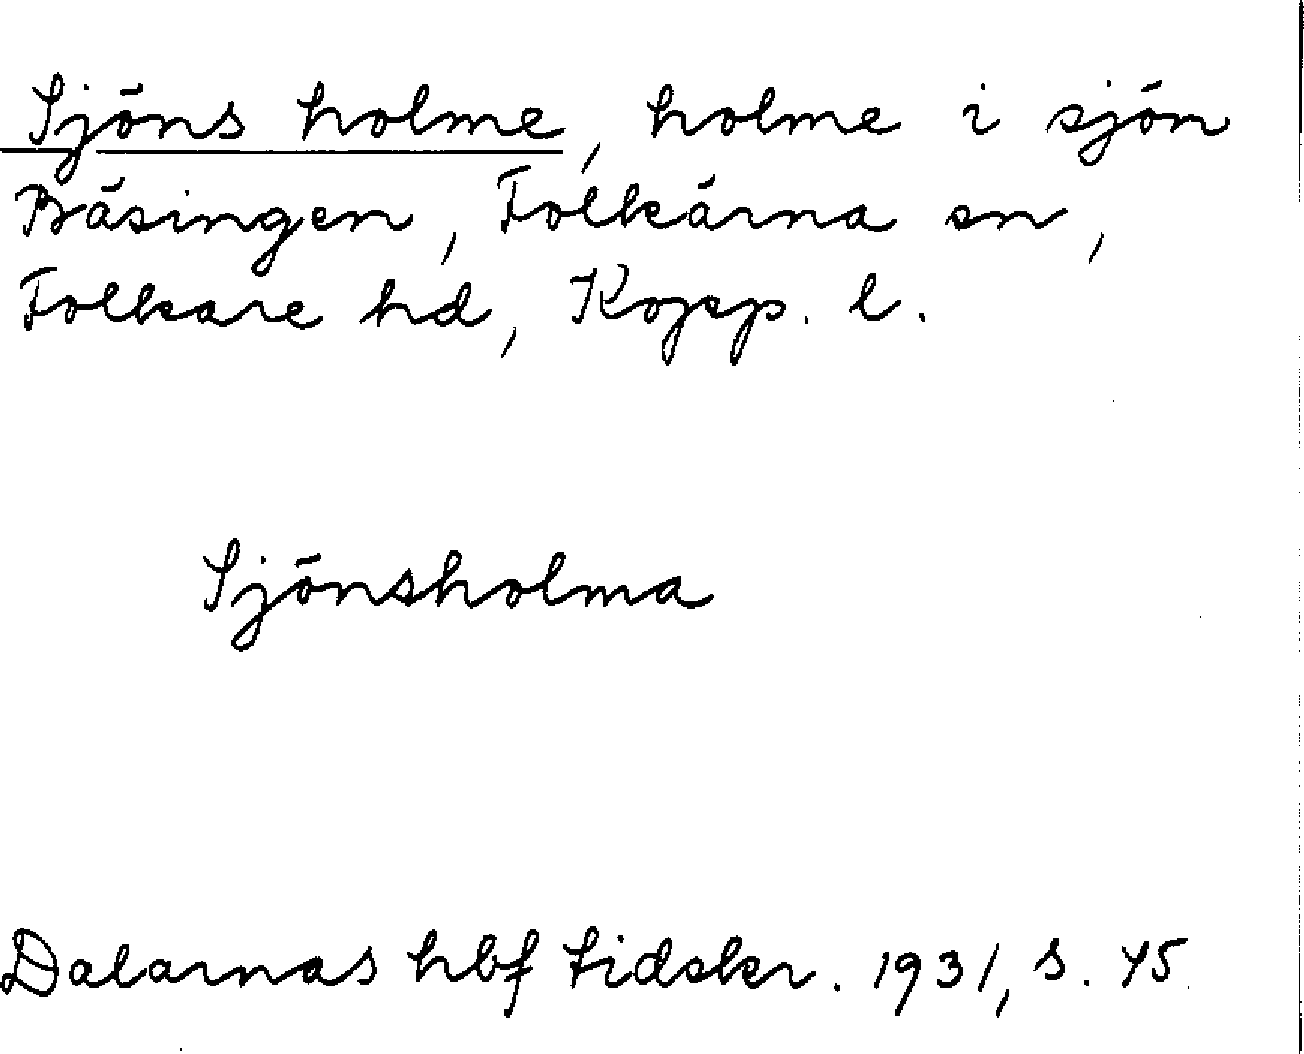 Sjöns holme, holme i sjön
Bäsingen, Folkärna sn,
Folkare hd, Kopp. l.
Sjönsholma
Dalarnas hbf tidskr. 1931, s. 45